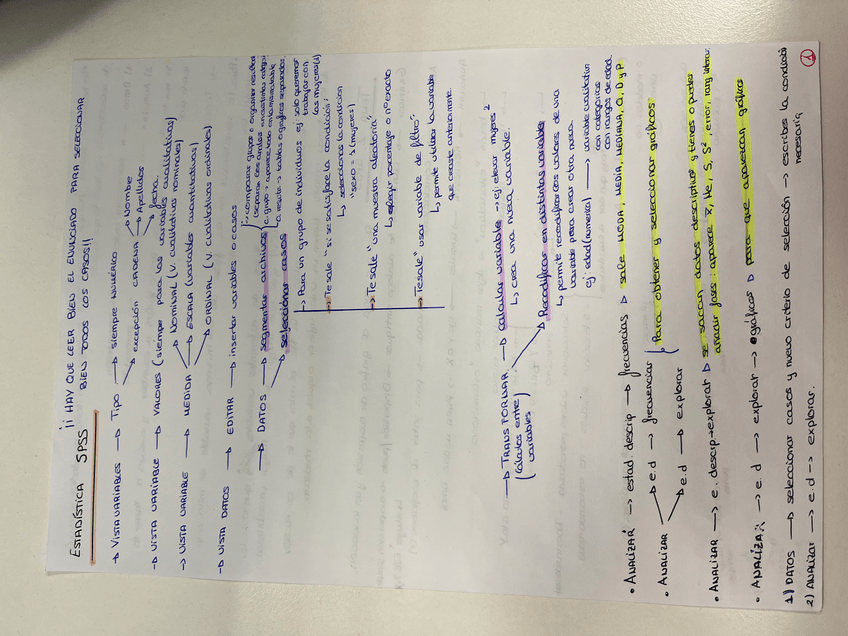 ESTADÍSTICA SPSS
¡¡ HAY QUE LEER BIEN EL ENUNCIADO PARA SELECCIONAR
BIEN TODOS LOS CASOS!!
→ VISTA VARIABLES → TIPO → siempre NUMÉRICO
→ excepción CADENA → Nombre
→ Apellidos
→ fecha.
→ VISTA VARIABLE → VALORES (siempre para las variables cualitativas)
→ VISTA VARIABLE → MEDIDA → NOMINAL (v. cualitativas nominales)
→ ESCALA (variables cuantitativas)
→ ORDINAL (v. cualitativas ordinales)
→ VISTA DATOS → EDITAR → insertar variables o casos
→ DATOS → segmentar archivos
→ seleccionar casos
→ Para un grupo de individuos ej: solo queremos
trabajar con
las mujeres (2)
→ Te sale "si se satisface la condición":
↳ seleccionas la condición
"sexo = 2 (mujeres)
→ Te sale "una muestra aleatoria"
↳ elegir porcentaje o nº exacto
→ Te sale "usar variable de filtro"
↳ permite utilizar la variable
que creaste anteriormente
→ TRANSFORMAR → calcular variable → ej elevar mujeres 2
(cálculos entre
variables)
↳ crea una nueva variable.
→ Recodificar en distintas variables
↳ permite recodificar los valores de una
variable para crear otra nueva.
ej: edad (numérica) → variable cualitativa
con categorías
con rangos de edad.
• ANALIZAR → estad. descrip → frecuencias → sale MODA, MEDIA, MEDIANA, Q, D y P
• ANALIZAR → e.d → frecuencias
→ e.d → explorar
Para obtener y seleccionar gráficos
• ANALIZAR → e. descrip → explorar → se sacan datos descriptivos y tienes o puedes
añadir fases: aparece x̄, Me, S, S², error, rang interc.
• ANALIZAR → e.d → explorar → gráficos → para que aparezcan gráficos
1) DATOS → seleccionar casos y nuevo criterio de selección → escribes la condición
necesaria
2) ANALIZAR → e.d → explorar.
1